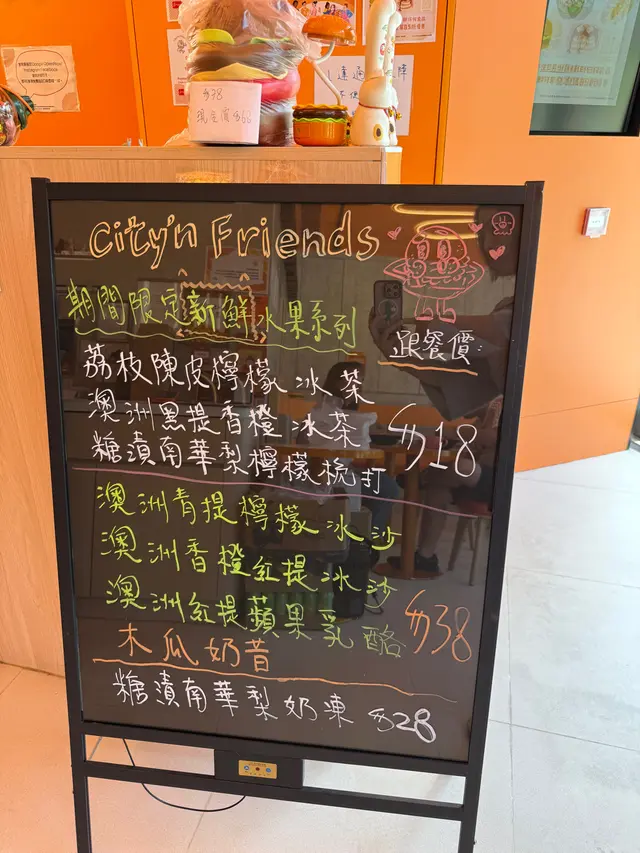 $38
City'n Friends
期間限定新鮮水果系列
跟餐價:
荔枝陳皮檸檬冰茶
澳洲黑提香橙冰茶
糖漬南華梨檸檬梳打
$18
澳洲青提檸檬冰沙
澳洲香橙紅提冰沙
澳洲紅提蘋果乳酪
木瓜奶昔
$38
糖漬南華梨奶凍 $28